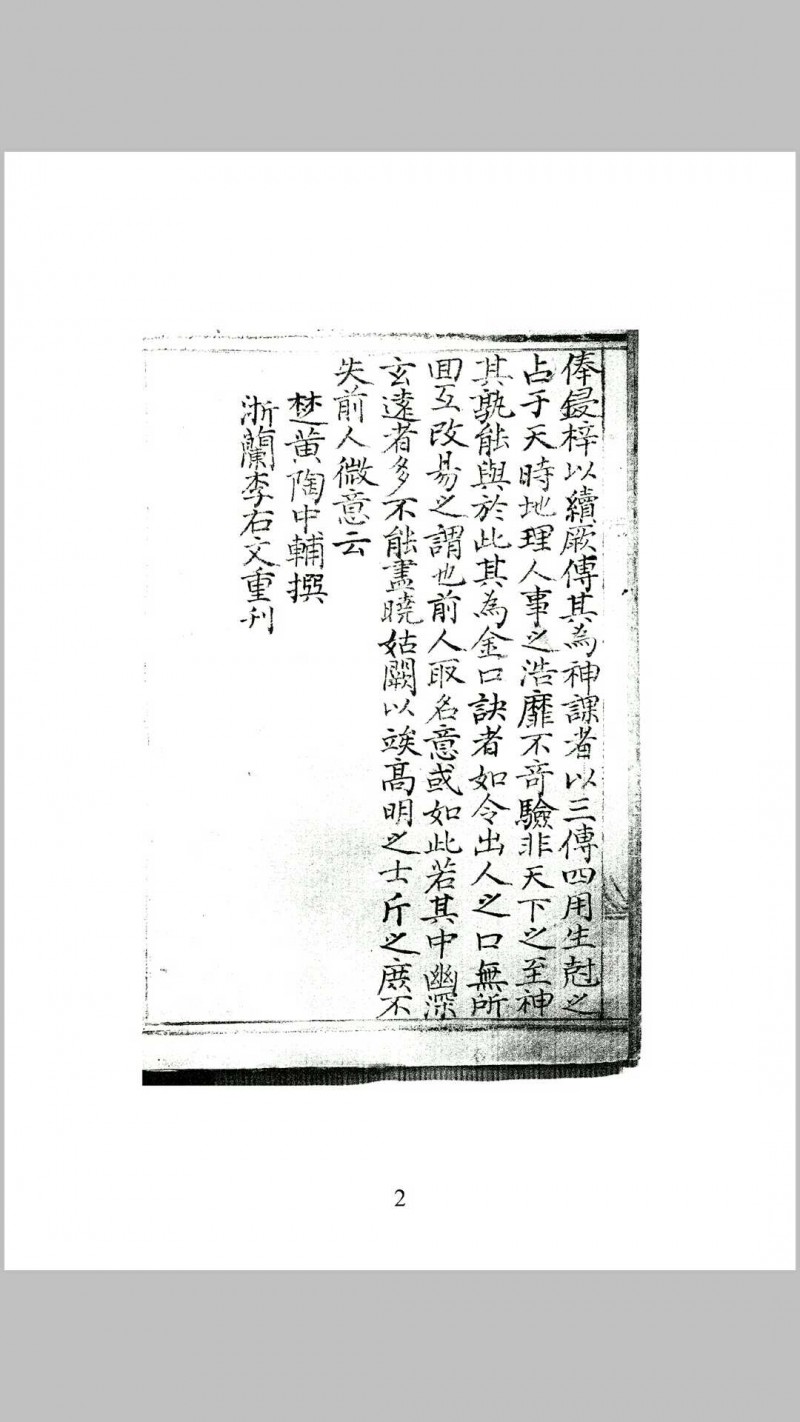 俸鋟梓以續厥傳其為神課者以三傳四用生尅之
占于天時地理人事之浩靡不竒驗非天下之至神
其孰能與於此其為金口訣者如令出人之口無所
囬互改易之謂也前人取名意或如此若其中幽深
玄遠者多不能盡曉姑闕以竢髙明之士斤之庻不
失前人微意云
楚黃陶中輔撰
浙蘭李右文重刋
2